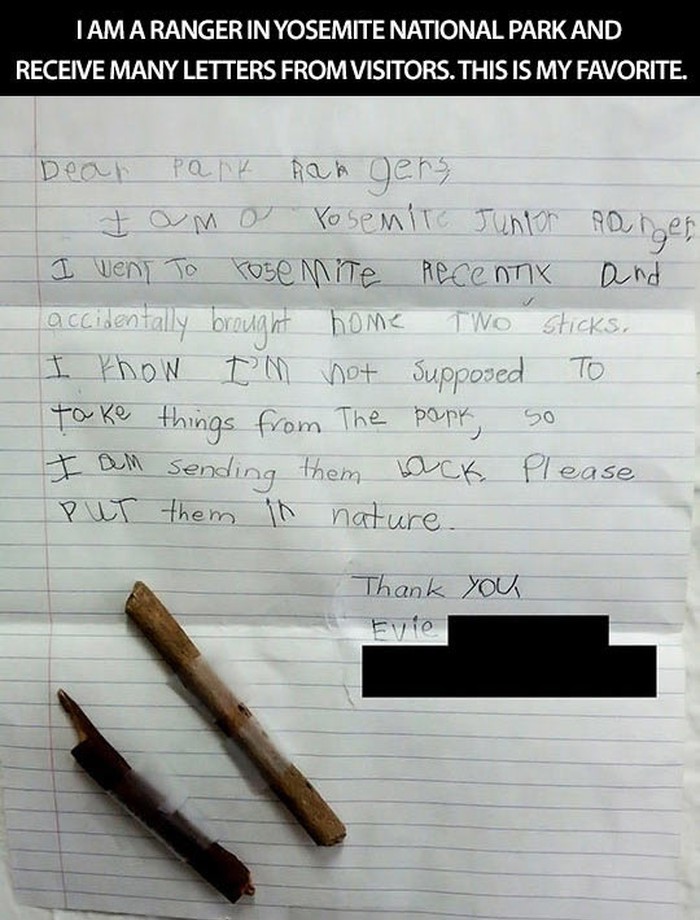 I AM A RANGER IN YOSEMITE NATIONAL PARK AND
RECEIVE MANY LETTERS FROM VISITORS. THIS IS MY FAVORITE.
Dear Park Rangers,
I am a Yosemite Junior Ranger.
I went To Yosemite Recently and
accidentally brought home Two sticks.
I know I'm not supposed To
take things from The park, so
I am sending them back. Please
PUT them in nature.
Thank you,
Evie